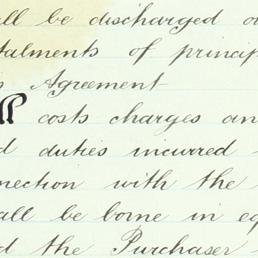 all be discharged ou
talments of princip
s Agreement
ll costs charges an
d duties incurred
nection with the
all be borne in eq
d the Purchaser